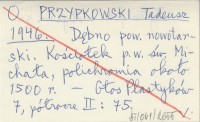 O PRZYPKOWSKI Tadeusz
1946. Dębno pow. nowotar-
ski. Kościółek p.w. św. Mi-
chała, polichromia około
1500 r. – Głos Plastyków
7, półrocze II : 75.